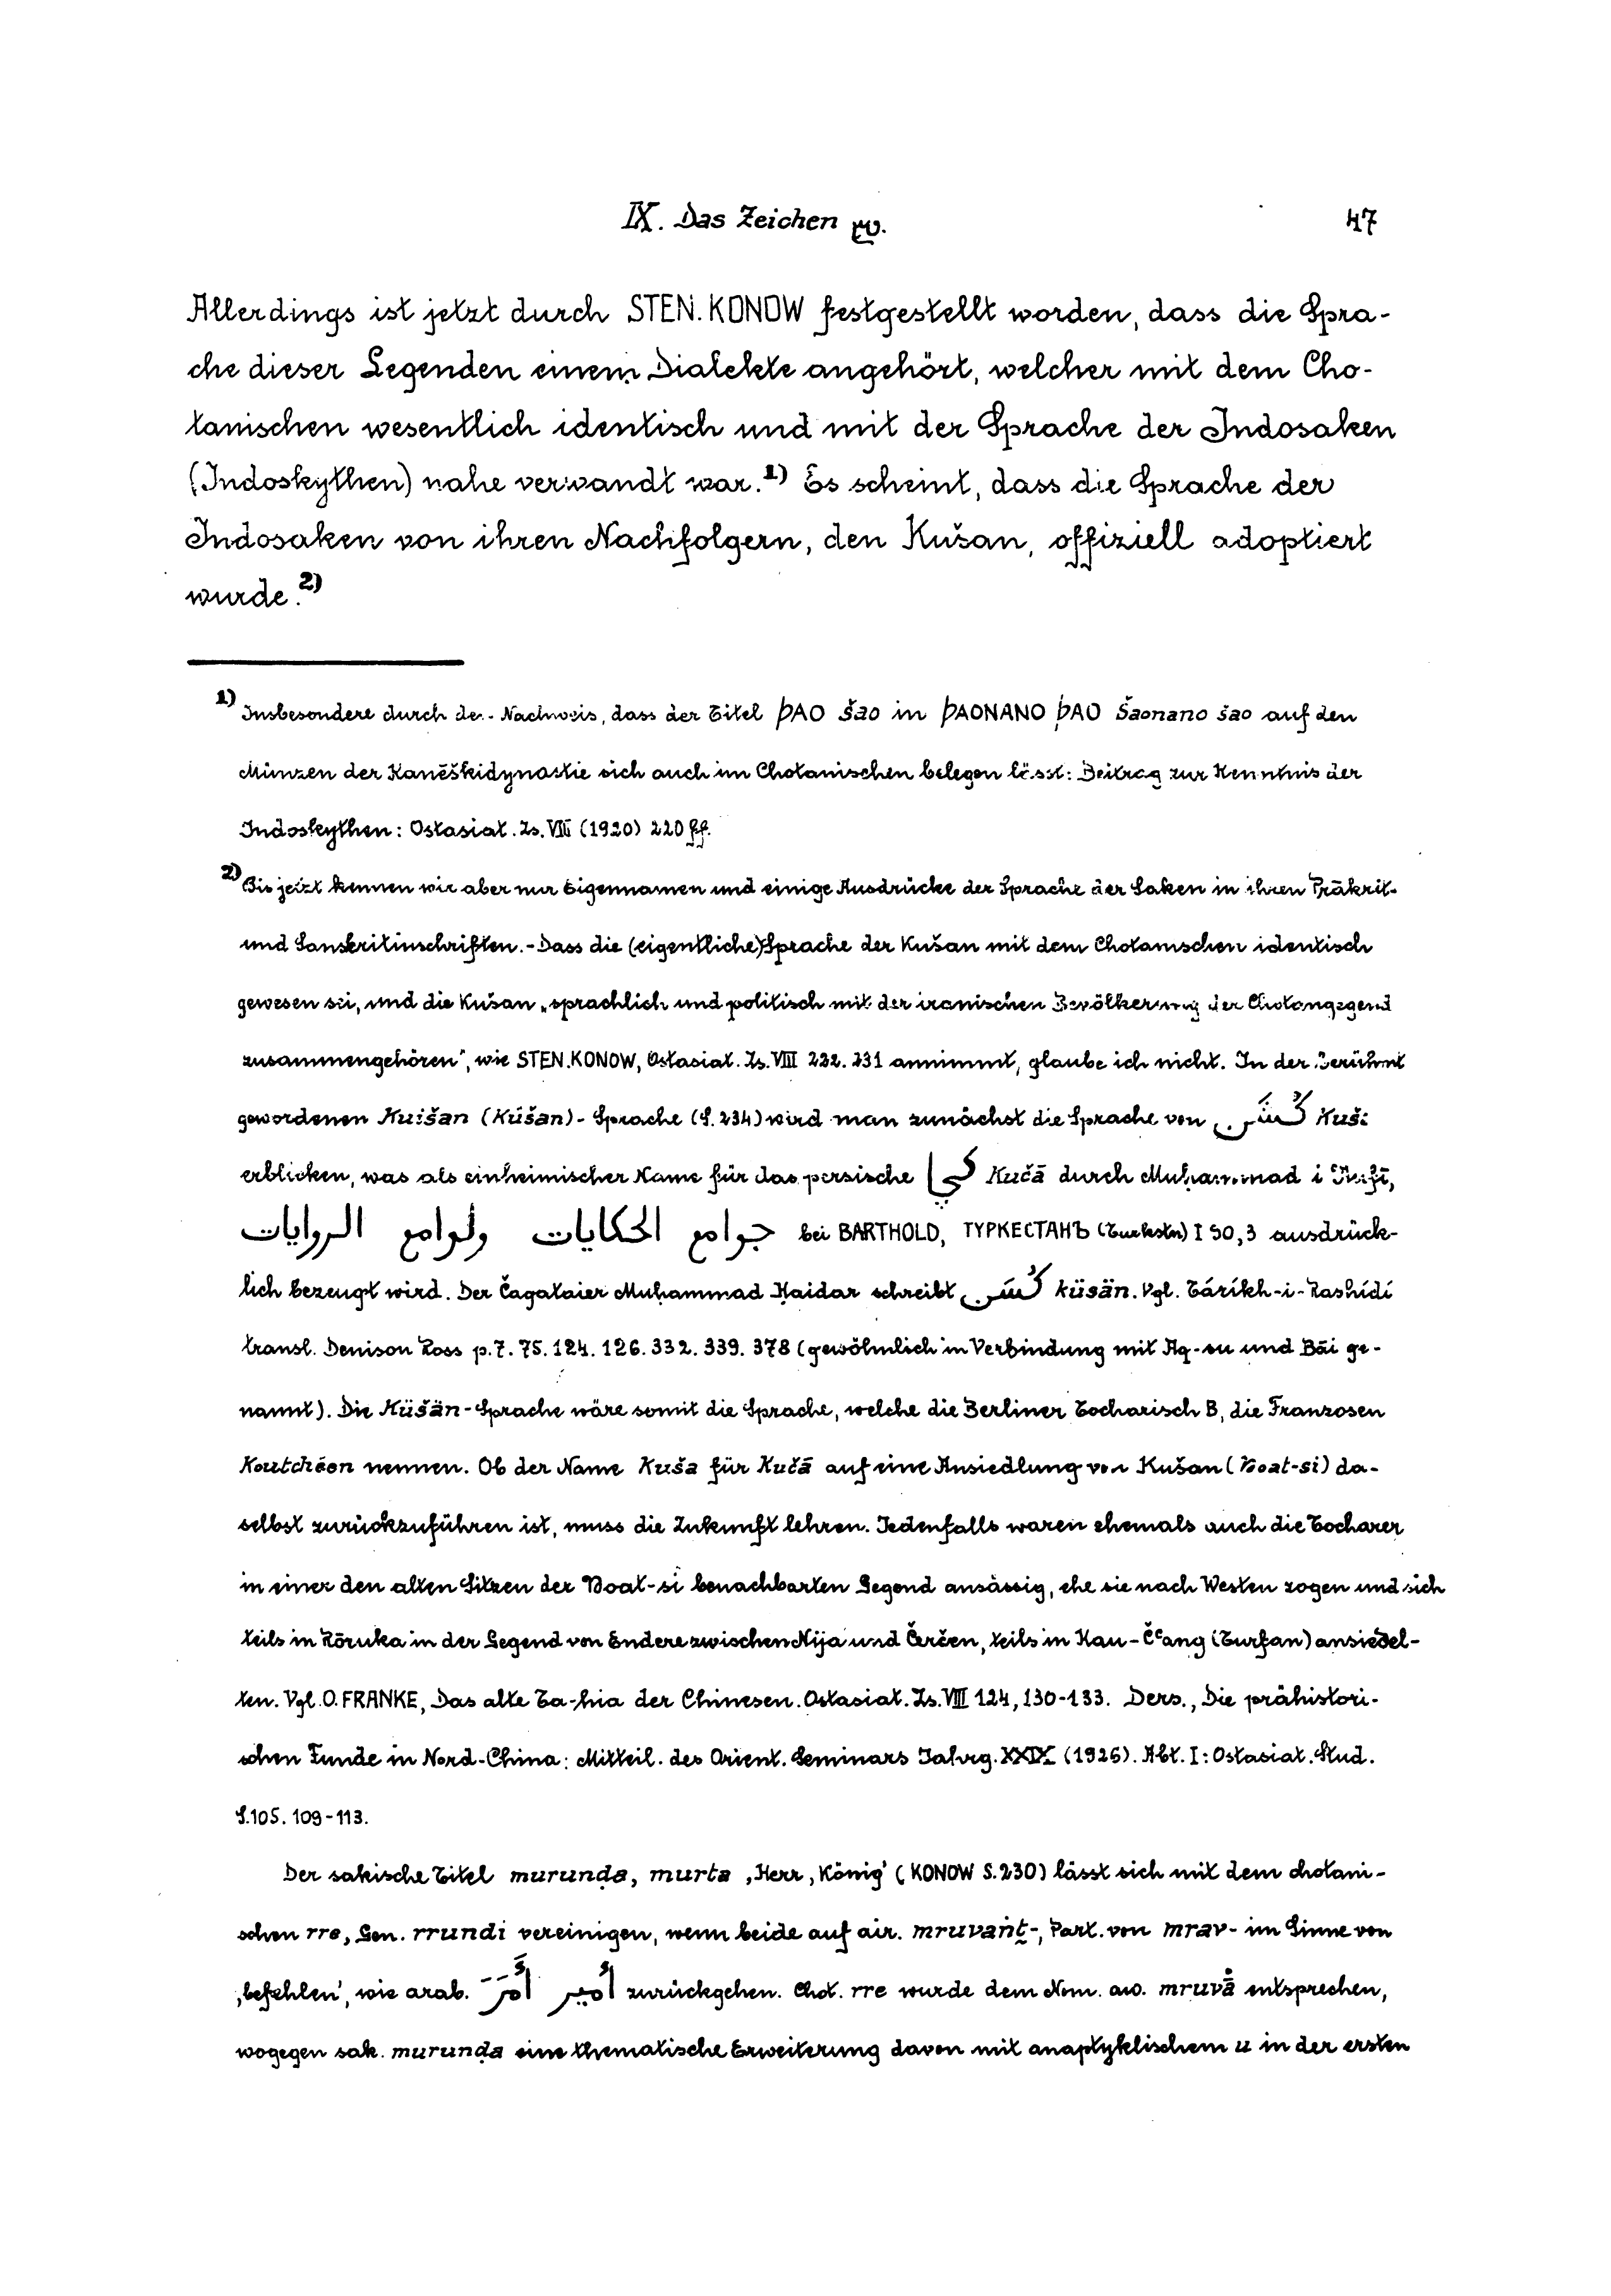 IX. Das Zeichen 47
Allerdings ist jetzt durch STEN. KONOW festgestellt worden, dass die Spra-
che dieser Legenden einem Dialekte angehört, welcher mit dem Cho-
tanischen wesentlich identisch und mit der Sprache der Indosaken
(Indoskythen) nahe verwandt war.¹⁾ Es scheint, dass die Sprache der
Indosaken von ihren Nachfolgern, den Kušan, offiziell adoptiert
wurde.²⁾
¹⁾ Insbesondere durch den Nachweis, dass der Titel ϷΑΟ šao in ϷΑΟΝΑΝΟ ϷΑΟ Šaonano šao auf den
Münzen der Kanēškidynastie sich auch im Chotanischen belegen lässt: Beitrag zur Kenntnis der
Indoskythen: Ostasiat. Zs. VIII (1920) 220 ff.
²⁾ Bis jetzt kennen wir aber nur Eigennamen und einige Ausdrücke der Sprache der Saken in ihren Prākrit-
und Sanskritinschriften. - Dass die (eigentliche) Sprache der Kušan mit dem Chotanischen identisch
gewesen sei, und die Kušan „sprachlich und politisch mit der iranischen Bevölkerung der Chotangegend
zusammengehören", wie STEN. KONOW, Ostasiat. Zs. VIII 232. 231 annimmt, glaube ich nicht. In der berühmt
gewordenen Kuišan (Kúšan)- Sprache (S. 234) wird man zunächst die Sprache von
erblicken, was als einheimischer Name für das persische Kučā durch Muḥammad i
جوامع الحكايات ولوامع الروايات bei BARTHOLD, ТУРКЕСТАНЪ (Turkestan) I 90,3 ausdrück-
lich bezeugt wird. Der Čagataier Muḥammad Ḥaidar schreibt كُسَن küsän. Vgl. Táríkh-i-Rashídí
transl. Denison Ross p. 7. 75. 124. 126. 332. 339. 378 (gewöhnlich in Verbindung mit Aq-su und Bāi ge-
nannt). Die Küšän-Sprache wäre somit die Sprache, welche die Berliner Tocharisch B, die Franzosen
Koutchéen nennen. Ob der Name Kuša für Kučā auf eine Ansiedlung von Kušan (Ꞵoat-si) da-
selbst zurückzuführen ist, muss die Zukunft lehren. Jedenfalls waren ehemals auch die Tocharer
in einer den alten Sitzen der Ꞵoat-si benachbarten Gegend ansässig, ehe sie nach Westen zogen und sich
teils in Rōruka in der Gegend von Endere zwischen Nija und Čerčen, teils in Kau-Čʿang (Turfan) ansiedel-
ten. Vgl. O. FRANKE, Das alte Ta-hia der Chinesen. Ostasiat. Zs. VIII 124, 130-133. Ders., Die prähistori-
schen Funde in Nord-China: Mitteil. des Orient. Seminars Jahrg. XXIX (1926). Abt. I: Ostasiat. Stud.
S. 105. 109-113.
Der sakische Titel murunḍa, murta ‚Herr, König' (KONOW S. 230) lässt sich mit dem chotani-
schen rre, Gen. rrundi vereinigen, wenn beide auf air. mruvant-, Part. von mrav- im Sinne von
‚befehlen', wie arab. أَمَرَ أمير zurückgehen. Chot. rre wurde dem Nom. aw. mruvā̊ entsprechen,
wogegen sak. murunḍa eine thematische Erweiterung davon mit anaptyktischem u in der ersten